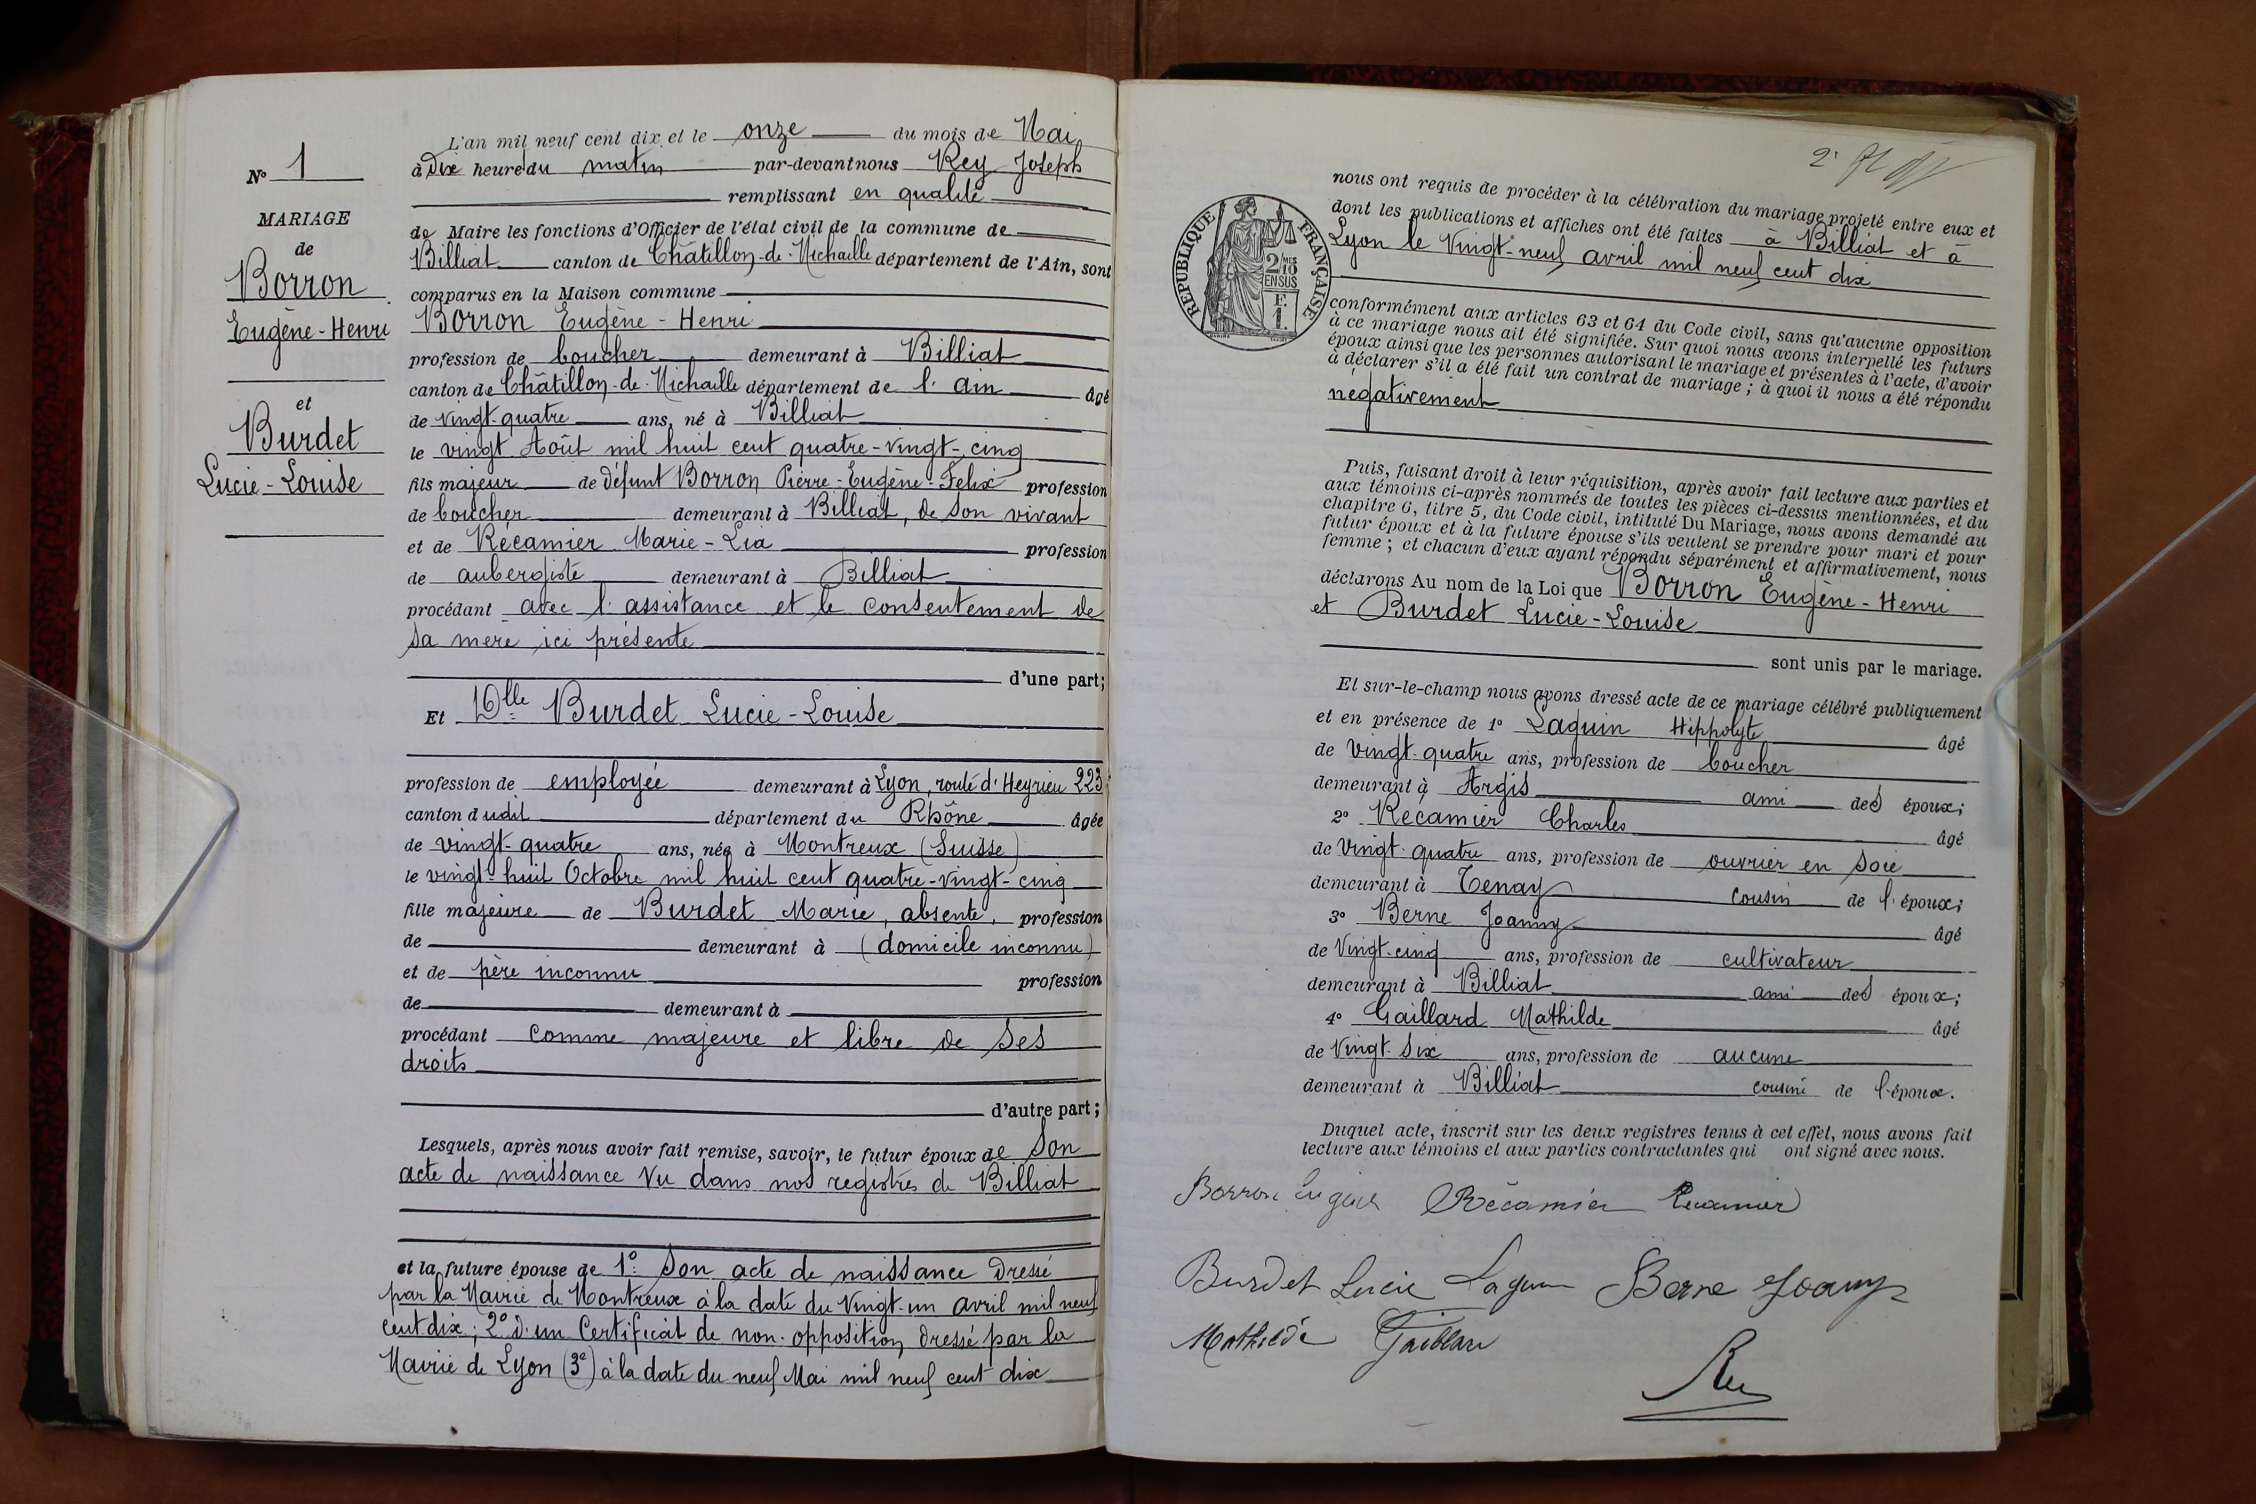 N° 1
MARIAGE
de
Borron
Eugène-Henri
et
Burdet
Lucie-Louise
L'an mil neuf cent dix et le onze du mois de Mai
à Dix heures du matin par-devant nous Rey Joseph
remplissant en qualité
de Maire les fonctions d'Officier de l'état civil de la commune de
Billiat canton de Châtillon-de-Michaille département de l'Ain, sont
comparus en la Maison commune
Borron Eugène-Henri
profession de boucher demeurant à Billiat
canton de Châtillon-de-Michaille département de l'ain âgé
de vingt-quatre ans, né à Billiat
le vingt Août mil huit cent quatre-vingt-cinq
fils majeur de défunt Borron Pierre-Eugène-Felix profession
de boucher demeurant à Billiat, de son vivant
et de Récamier Marie-Lia profession
de aubergiste demeurant à Billiat
procédant avec l'assistance et le consentement de
sa mère ici présente
d'une part;
Et Dlle Burdet Lucie-Louise
profession de employée demeurant à Lyon, route d'Heyrieu 223
canton dudit département du Rhône âgée
de vingt-quatre ans, née à Montreux (Suisse)
le vingt-huit Octobre mil huit cent quatre-vingt-cinq
fille majeure de Burdet Marie, absente, profession
de demeurant à (domicile inconnu)
et de père inconnu profession
de demeurant à
procédant comme majeure et libre de ses
droits
d'autre part;
Lesquels, après nous avoir fait remise, savoir, le futur époux de Son
acte de naissance vu dans nos registres de Billiat
et la future épouse de 1° Son acte de naissance dressé
par la Mairie de Montreux à la date du vingt-un avril mil neuf
cent dix; 2° d'un Certificat de non-opposition dressé par la
Mairie de Lyon (3e) à la date du neuf Mai mil neuf cent dix
RÉPUBLIQUE FRANÇAISE
2/10 MES
EN SUS
F.
1.
nous ont requis de procéder à la célébration du mariage projeté entre eux et
dont les publications et affiches ont été faites à Billiat et à
Lyon le vingt-neuf avril mil neuf cent dix
conformément aux articles 63 et 64 du Code civil, sans qu'aucune opposition
à ce mariage nous ait été signifiée. Sur quoi nous avons interpellé les futurs
époux ainsi que les personnes autorisant le mariage et présentes à l'acte, d'avoir
à déclarer s'il a été fait un contrat de mariage; à quoi il nous a été répondu
négativement
Puis, faisant droit à leur réquisition, après avoir fait lecture aux parties et
aux témoins ci-après nommés de toutes les pièces ci-dessus mentionnées, et du
chapitre 6, titre 5, du Code civil, intitulé Du Mariage, nous avons demandé au
futur époux et à la future épouse s'ils veulent se prendre pour mari et pour
femme; et chacun d'eux ayant répondu séparément et affirmativement, nous
déclarons Au nom de la Loi que Borron Eugène-Henri
et Burdet Lucie-Louise
sont unis par le mariage.
Et sur-le-champ nous avons dressé acte de ce mariage célébré publiquement
et en présence de 1° Laguin Hippolyte âgé
de vingt-quatre ans, profession de boucher
demeurant à Argis ami des époux;
2° Récamier Charles âgé
de vingt-quatre ans, profession de ouvrier en soie
demeurant à Tenay cousin de l'époux;
3° Berne Joanny âgé
de vingt-cinq ans, profession de cultivateur
demeurant à Billiat ami des époux;
4° Gaillard Mathilde âgé
de vingt-six ans, profession de aucune
demeurant à Billiat cousine de l'époux.
Duquel acte, inscrit sur les deux registres tenus à cet effet, nous avons fait
lecture aux témoins et aux parties contractantes qui ont signé avec nous.
Borron Eugène Récamier Récamier
Burdet Lucie Laguin Berne Joanny
Mathilde Gaillard
Rey